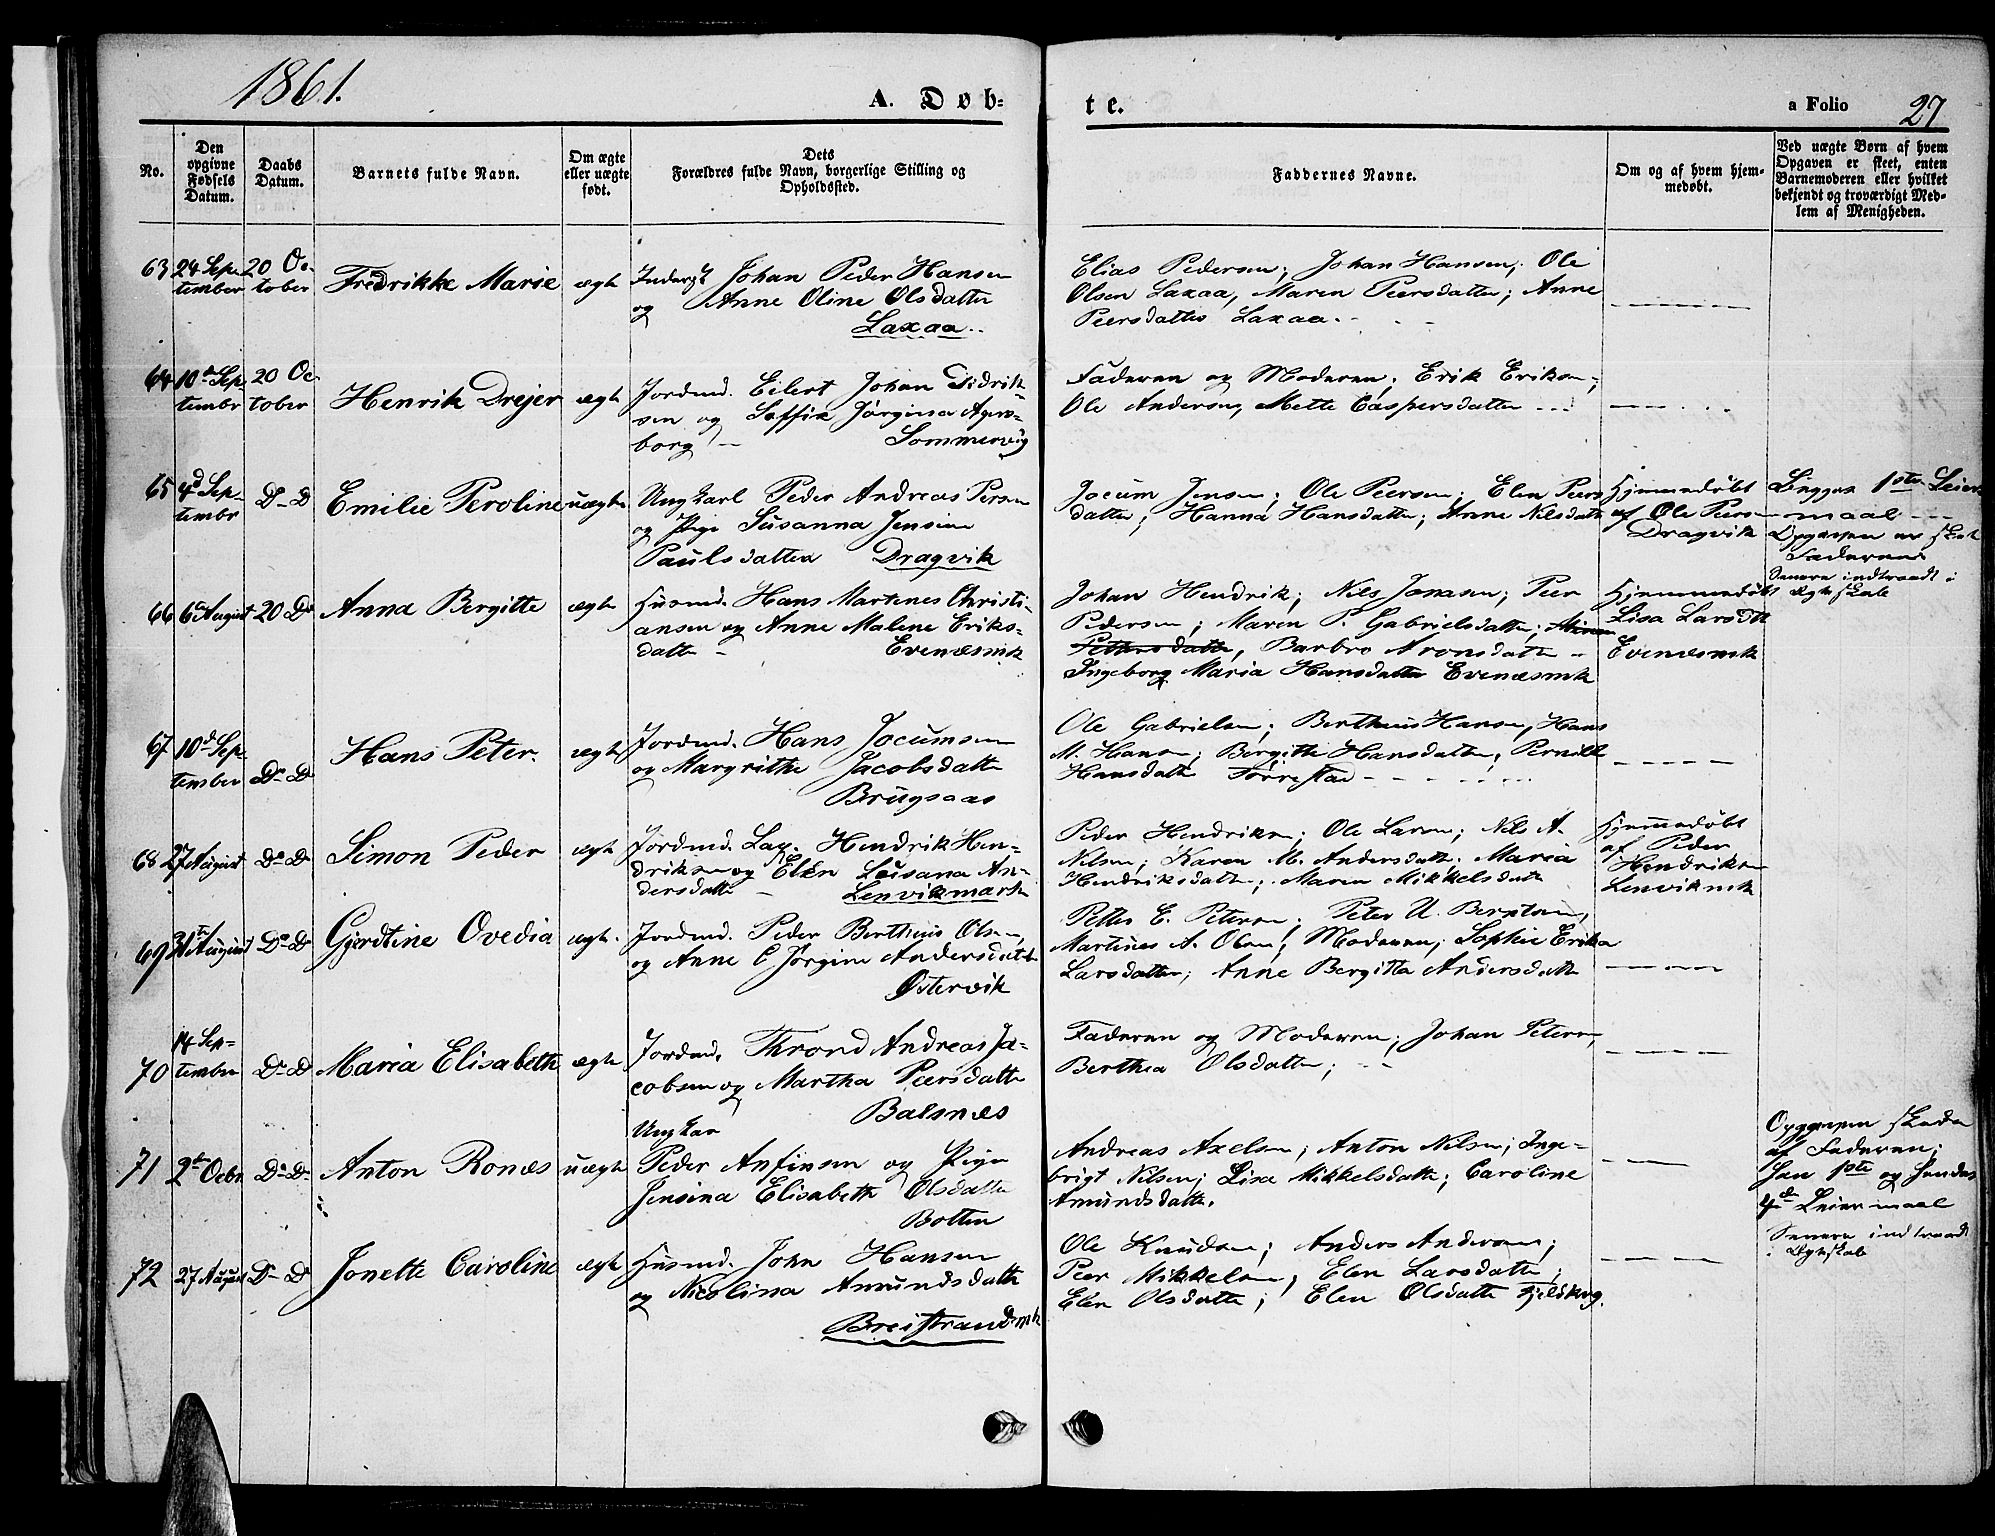 1861.
A. Døb-
te.
a Folio 27
No.
Den opgivne Fødsels Datum.
Daabs Datum.
Barnets fulde Navn.
Om ægte eller uægte født.
Dets Forældres fulde Navn, borgerlige Stilling og Opholdssted.
Faddernes Navne.
Om og af hvem hjemmedøbt.
Ved uægte Børn af hvem Opgaven er skeet, enten Barnemoderen eller hvilket bekjendt og troværdigt Medlem af Menigheden.
63 24 Sep- 20 Oc-
tember tober Fredrikke Marie ægte
Inderst Johan Peder Hansen
og Anne Oline Olsdatter
Laxaa
Elias Pedersen; Johan Hansen; Ole
Olsen Laxaa, Maren Peersdatter; Anne
Peersdatter Laxaa.
64 10de Sep- 20 Oc-
tembr tober Henrik Drejer ægte
Jordmd. Eilert Johan Fidrik-
sen og Soffie Jørgina Agers-
borg - Sommervig
Faderen og Moderen; Erik Eriksen;
Ole Andersen, Mette Caspersdatter
65 4d Sep-
tembr Do Do Emilie Peroline uægte
Ungkarl Peder Andreas Persen
og Pige Susanna Jensine
Paulsdatter Dragvik
Jocum Jensen; Ole Peersen; Elen Peers
datter; Hanna Hansdatter; Anne Nilsdatter
Hjemmedøbt
af Ole Peers-
Dragvik
Begges 1ste Leier-
maal
Opgaven er skeet
Faderen
Senere indtraadt i
Ægteskab
66 6 August 20 Do Anna Bergitte ægte
Husmd. Hans Martenes Christi-
ansen og Anne Malene Eriks-
datter - Evenæsmk
Johan Hendrik; Nils Jonasen; Peer
Pedersen; Maren P. Gabrielsdatter;
Pettersdatter, Barbro Aronsdatter
Ingeborg Maria Hansdatter Evenæsmk
Hjemmedøbt
Lisa Larsdtr
Evenæsmk
67 10d Sep-
tember Do Do Hans Peter. ægte
Jordmd. Hans Jocumsen
og Margrithe Jacobsdatter
Brugsaas
Ole Gabrielsen; Bertheus Hansen, Hans
M. Hansen; Bergitte Hansdatter; Pernille
Hansdatter Førrestad
68 27 August Do Do Simon Peder ægte
Jordmd. Lap. Hendrik Hen-
driksen og Elen Lusana An-
dersdatter - Lenvikmark
Peder Hendriksen; Ole Larsen; Nils A.
Nilsen; Karen M. Andersdatter; Maria
Hendriksdatter; Maren Mikkelsdatter
Hjemmedøbt
af Peder
Hendriksen
Lenvikmk
69 31te August Do Do Gjerdtine Ovedia ægte.
Jordmd. Peder Bertheus Olsen,
og Anne C Jørgine Andersdatter
Østervik
Petter E. Petersen; Peter U. Berntsen,
Martines A. Olsen; Moderen; Sophie Erika
Larsdatter; Anne Bergitta Andersdatter
14 Sep-
70 tember Do Do Maria Elisabeth ægte
Jordmd. Thrond Andreas Ja-
cobsen og Martha Peersdatter
Balsnæs
Faderen og Moderen; Johan Petersen,
Berthea Olsdatter;
71 2de Octbr Do Do Anton Ronæs uægte
Ungkar
Peder Anfinsen og Pigen
Jensina Elisabeth Olsdatter
Botten
Andreas Axelsen; Anton Nilsen; Inge-
brigt Nilsen; Lisa Mikkelsdatter; Caroline
Amundsdatter.
Opgaven skede
af Faderen;
Han 1ste og Hendes
4d Leiermaal
Senere indtraadt
i Ægteskab
72 27 August Do Do Jonette Caroline ægte
Husmd. John Hansen
og Nicolina Amundsdatter
Breistrandmk
Ole Knudsen; Anders Andersen;
Peer Mikkelsen; Elen Larsdatter;
Elen Olsdatter; Elen Olsdatter Fjeldkog.